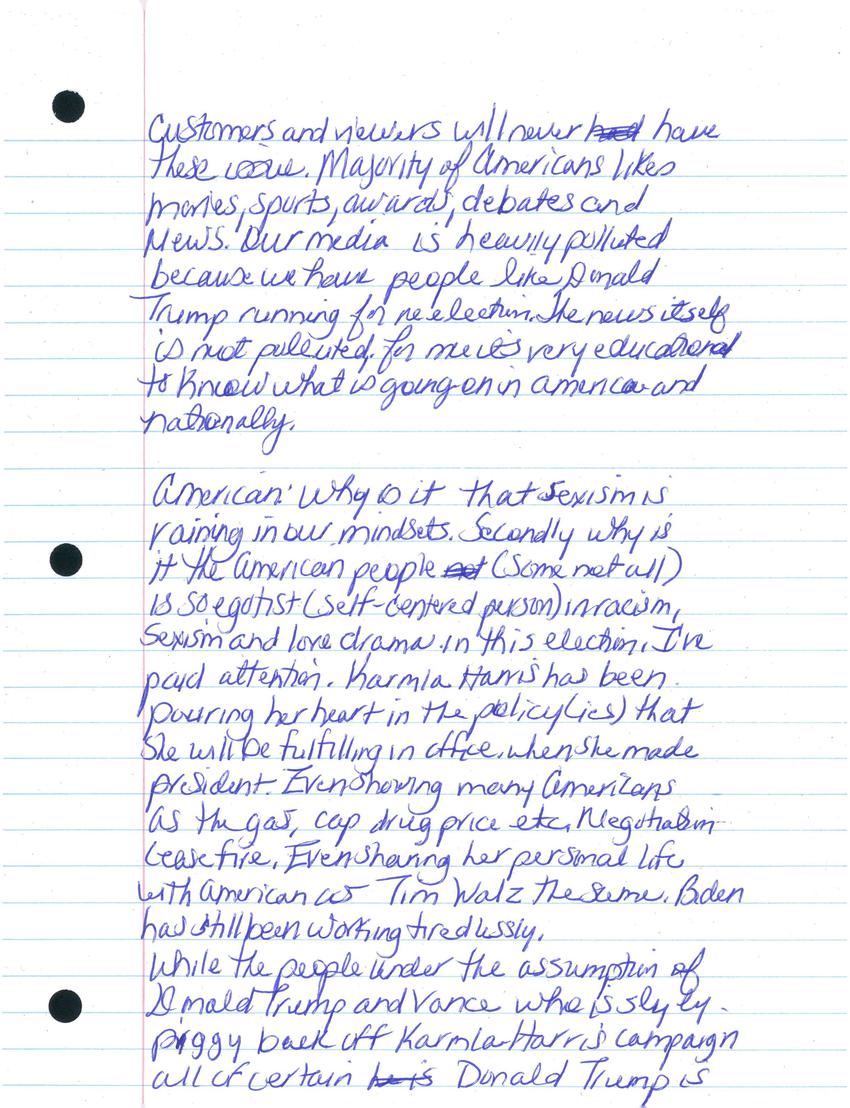 Customers and viewers will never had have
these issue. Majority of Americans likes
movies, sports, awards, debates and
News. Our media is heavily polluted
because we have people like Donald
Trump running for reelection. The news itself
is not polluted. for me it's very educational
to know what is going on in america and
nationally.
American: Why is it that Sexism is
raining in our mindsets. Secondly why is
it the American people not (some not all)
is so egotist (self-centered person) in racism,
Sexism and love drama. in this election, I've
paid attention. Karmla Harris has been
pouring her heart in the policy(ies) that
She will be fulfilling in office. when she made
president. Even showing many Americans
as the gas, cap drug price etc, Negotiation
Cease fire. Even sharing her personal life
with American as Tim Walz the same. Biden
has still been working tiredlessly.
While the people under the assumption of
Donald Trump and Vance who is slyly
piggy back off Karmla Harris campaign
all of certain he is Donald Trump is